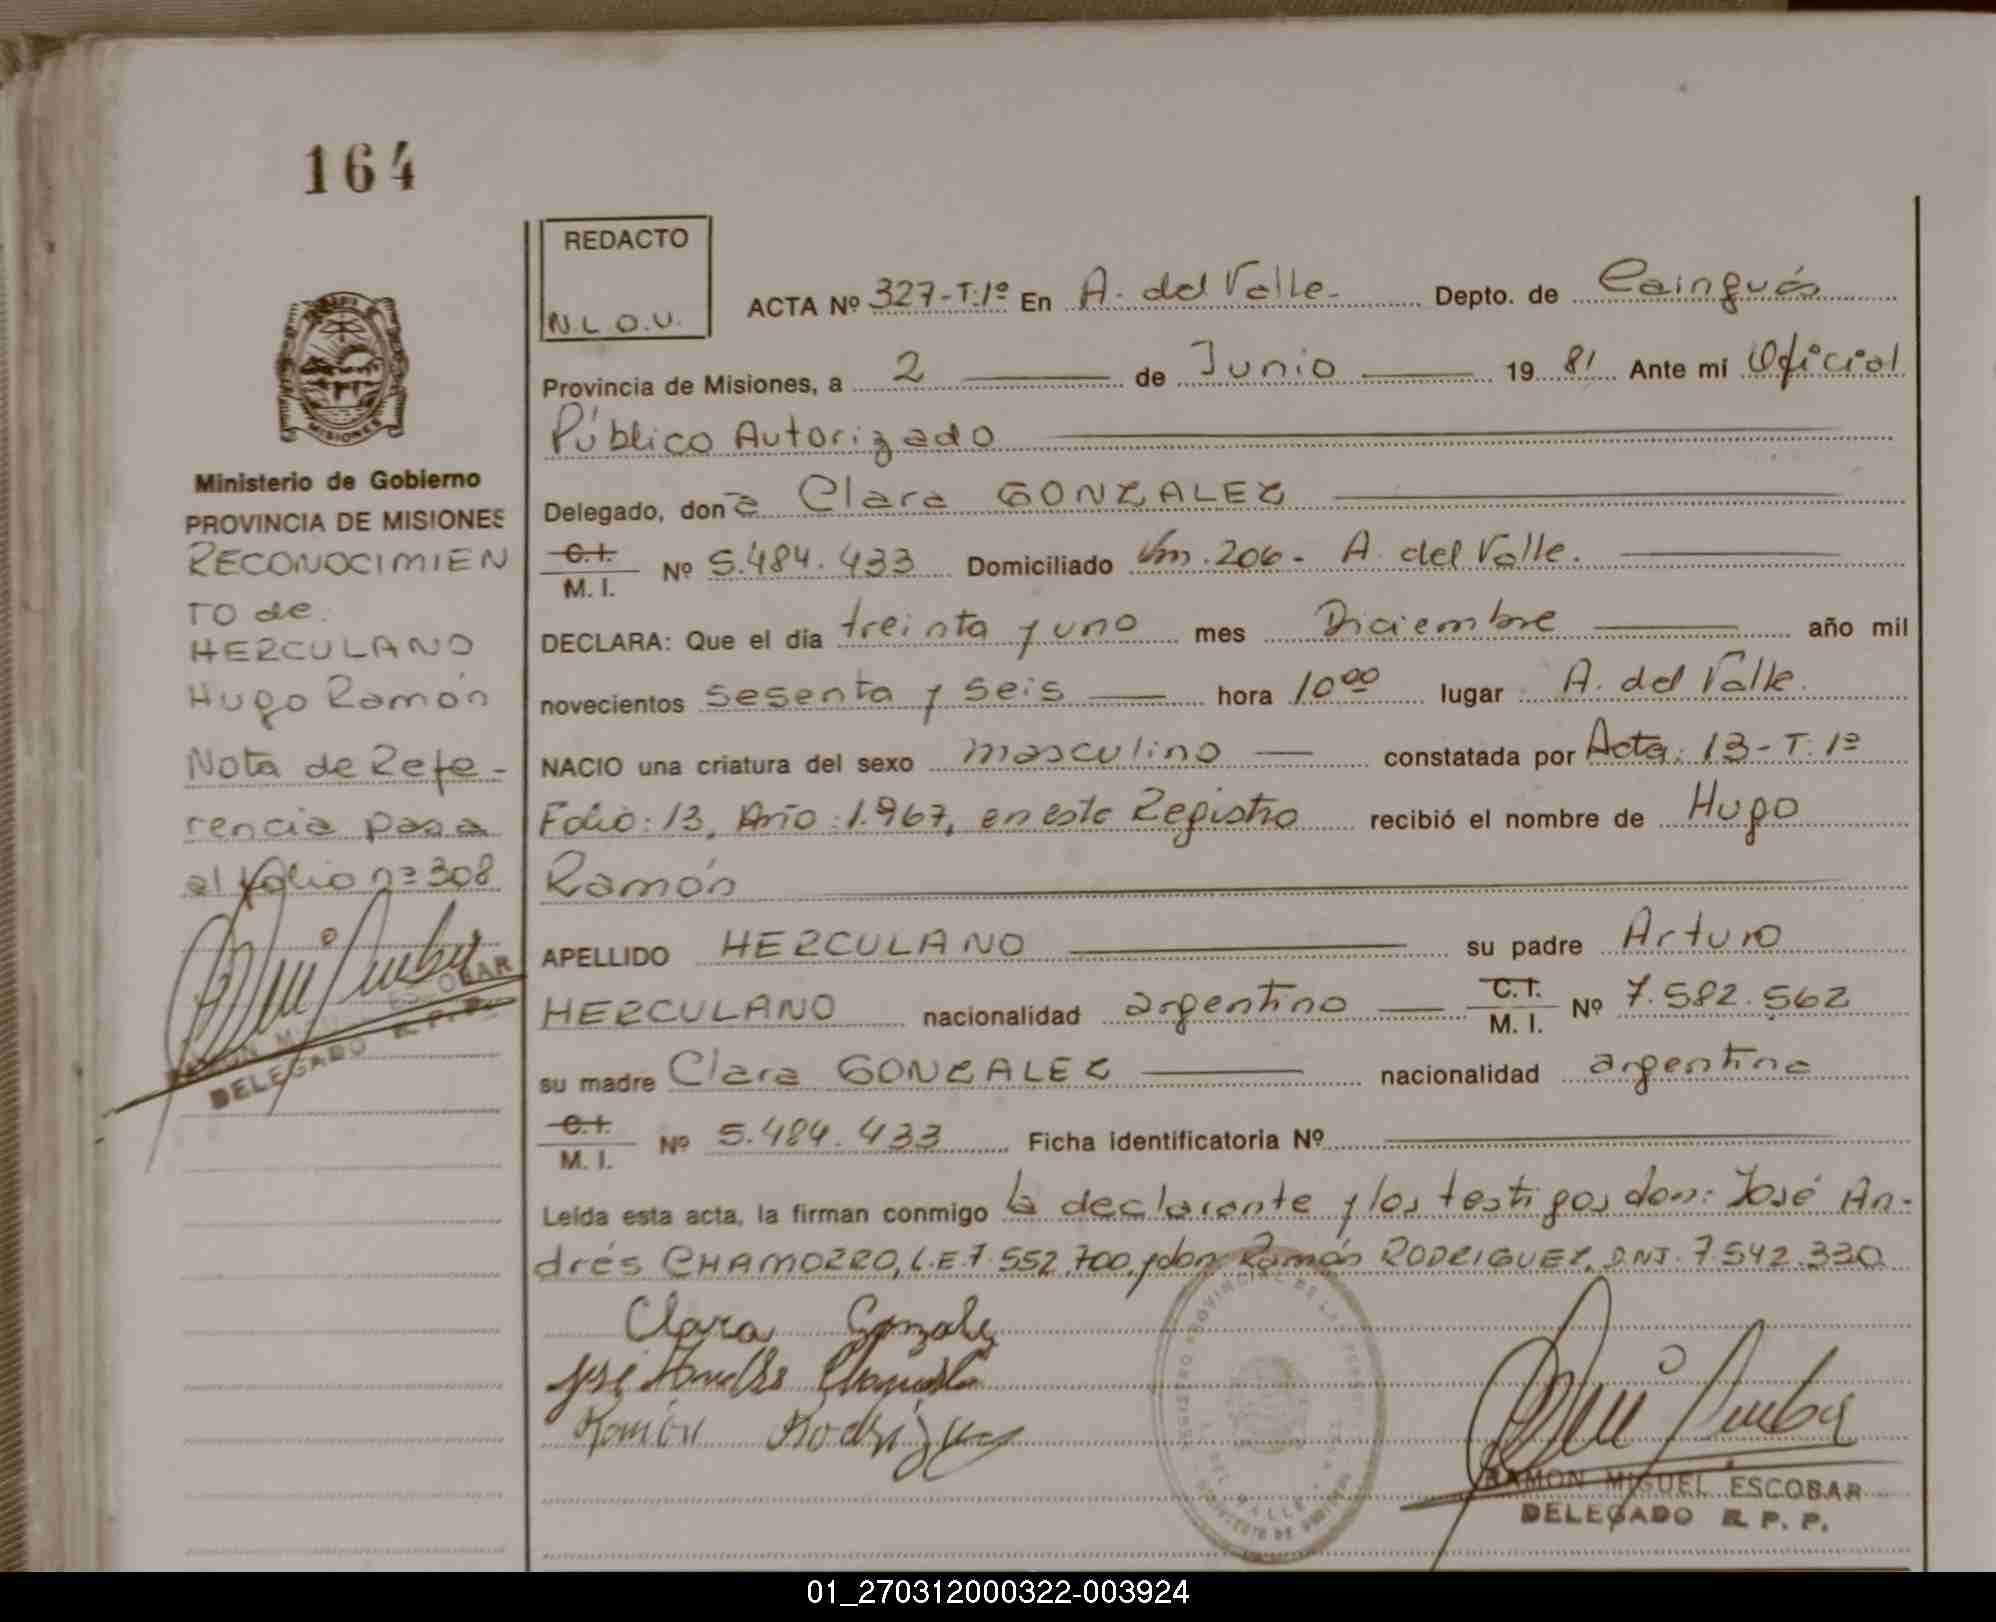 164
REDACTO
N.L.O.U.
ACTA Nº 327-T:1º En A. del Valle- Depto. de Cainguás
Provincia de Misiones, a 2 de Junio 19 81 Ante mí Oficial
Público Autorizado
Delegado, don a Clara GONZALEZ
C.I. M.I. Nº 5.484.433 Domiciliado Km.206- A. del Valle.
DECLARA: Que el día treinta y uno mes Diciembre año mil
novecientos sesenta y seis hora 10⁰⁰ lugar A. del Valle.
NACIO una criatura del sexo masculino constatada por Acta: 13-T.1º
Folio: 13, Año: 1.967, en este Registro recibió el nombre de Hugo
Ramón
APELLIDO HERCULANO su padre Arturo
HERCULANO nacionalidad argentino C.I. M.I. Nº 7.582.562
su madre Clara GONZALEZ nacionalidad argentina
C.I. M.I. Nº 5.484.433 Ficha identificatoria Nº
Leída esta acta, la firman conmigo la declarante y los testigos don: José An-
drés CHAMORRO, L.E.7.552.700, y don Ramón RODRIGUEZ, D.N.I. 7.542.330
Clara Gonzalez
José Andrés
Ramón Rodríguez
RAMON MIGUEL ESCOBAR
DELEGADO R.P.P.
MISIONES
Ministerio de Gobierno
PROVINCIA DE MISIONES
RECONOCIMIEN
TO de.
HERCULANO
Hugo Ramón
Nota de Refe-
rencia pasa
al folio nº 308
RAMON MIGUEL ESCOBAR
DELEGADO R.P.P.
01_270312000322-003924